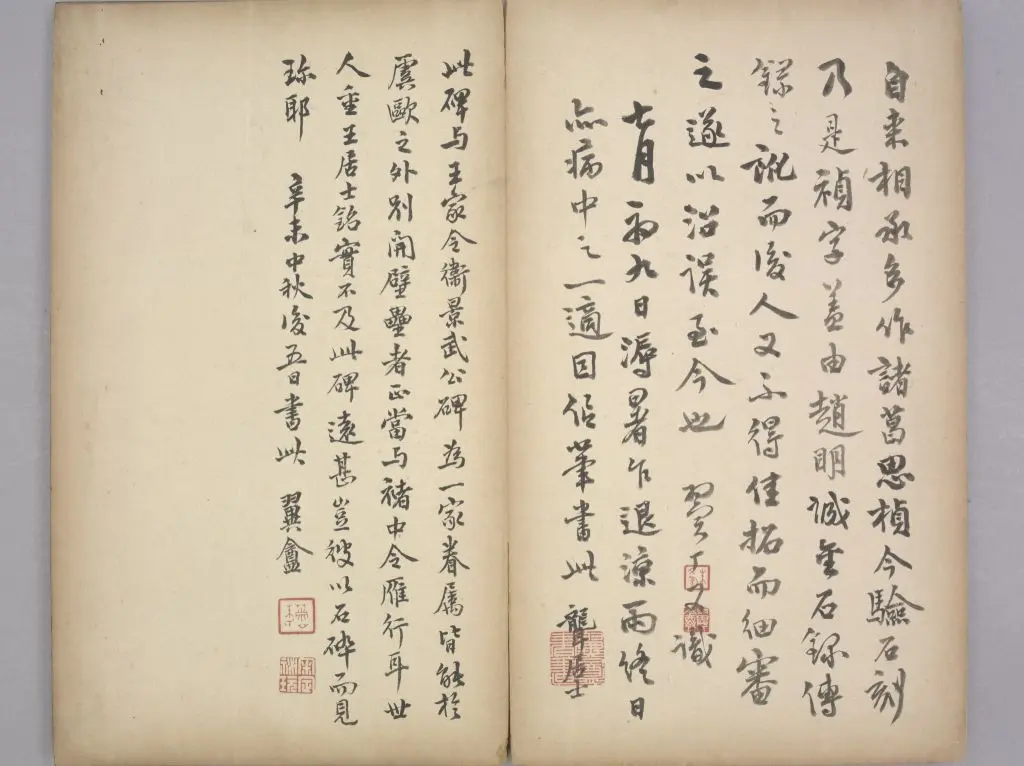 自來相承多作諸葛思楨今驗石刻
乃是禎字蓋由趙明誠金石錄傳
錄之訛而後人又不得佳拓而細審
之遂以沿误至今也 翼盦又識
七月初九日溽暑乍退涼雨终日
亦病中之一適因信筆書此 聾居士
此碑与王家令衞景武公碑為一家眷属皆能於
虞歐之外別開壁壘者正當与褚中令雁行耳世
人重王居士銘實不及此碑遠甚豈彼以石碎而見
珎耶 辛未中秋後五日書此 翼盦